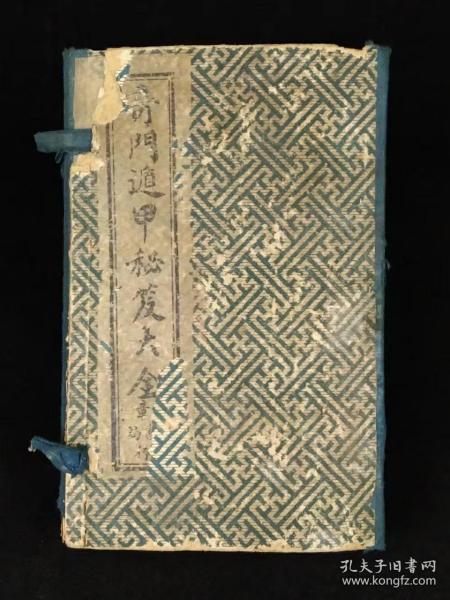 奇門遁甲秘笈大全
孔夫子旧书网
www.kongfz.com